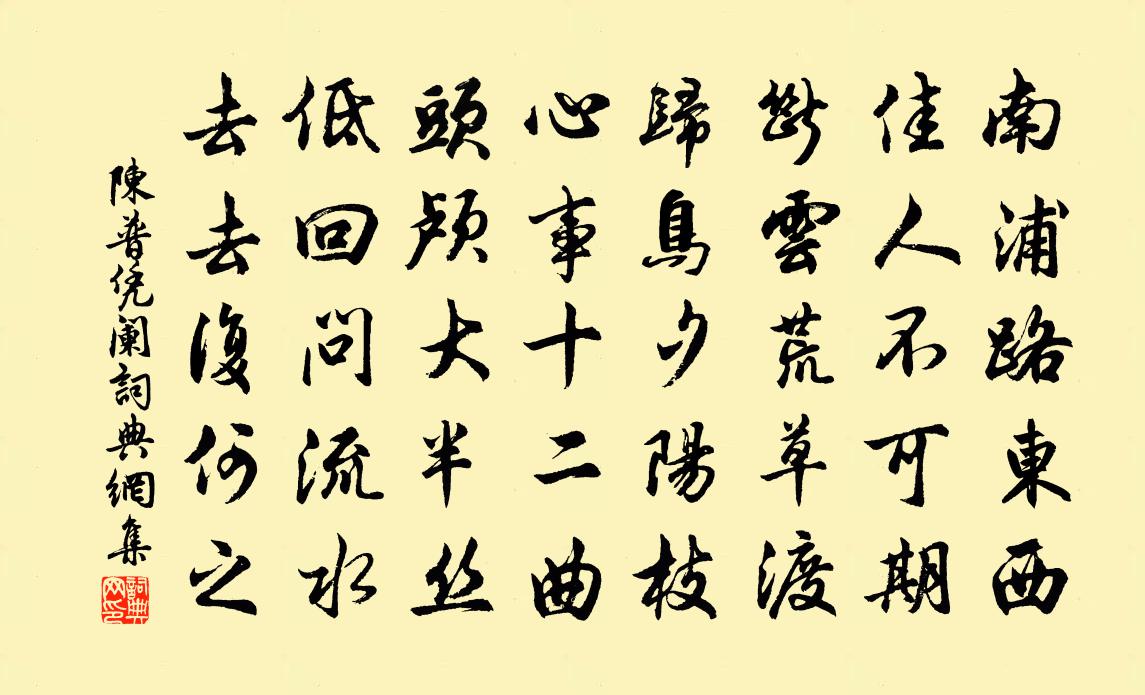 南浦路東西
佳人不可期
斷雲荒草渡
歸鳥夕陽枝
心事十二曲
頭顱大半絲
低回問流水
去去復何之
陳普凭闌詞典網集
詞典网印